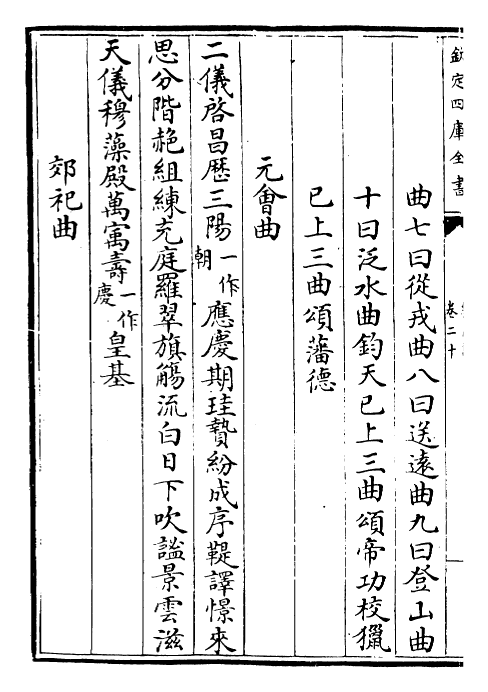 欽定四庫全書
卷二十
曲七曰從戎曲八曰送遠曲九曰登山曲
十曰泛水曲鈞天已上三曲頌帝功校獵
已上三曲頌藩德
元會曲
二儀啓昌歴三陽一作朝應慶期珪贄紛成序鞮譯憬來
思分階艴組練充庭羅翠旗觴流白日下吹謐景雲滋
天儀穆藻殿萬㝢壽一作慶皇基
郊祀曲